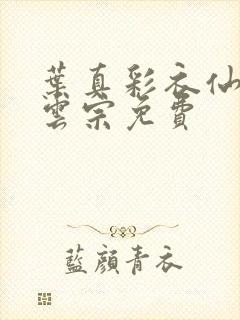 葉真彩衣仙
雲宗免費
藍顏青衣